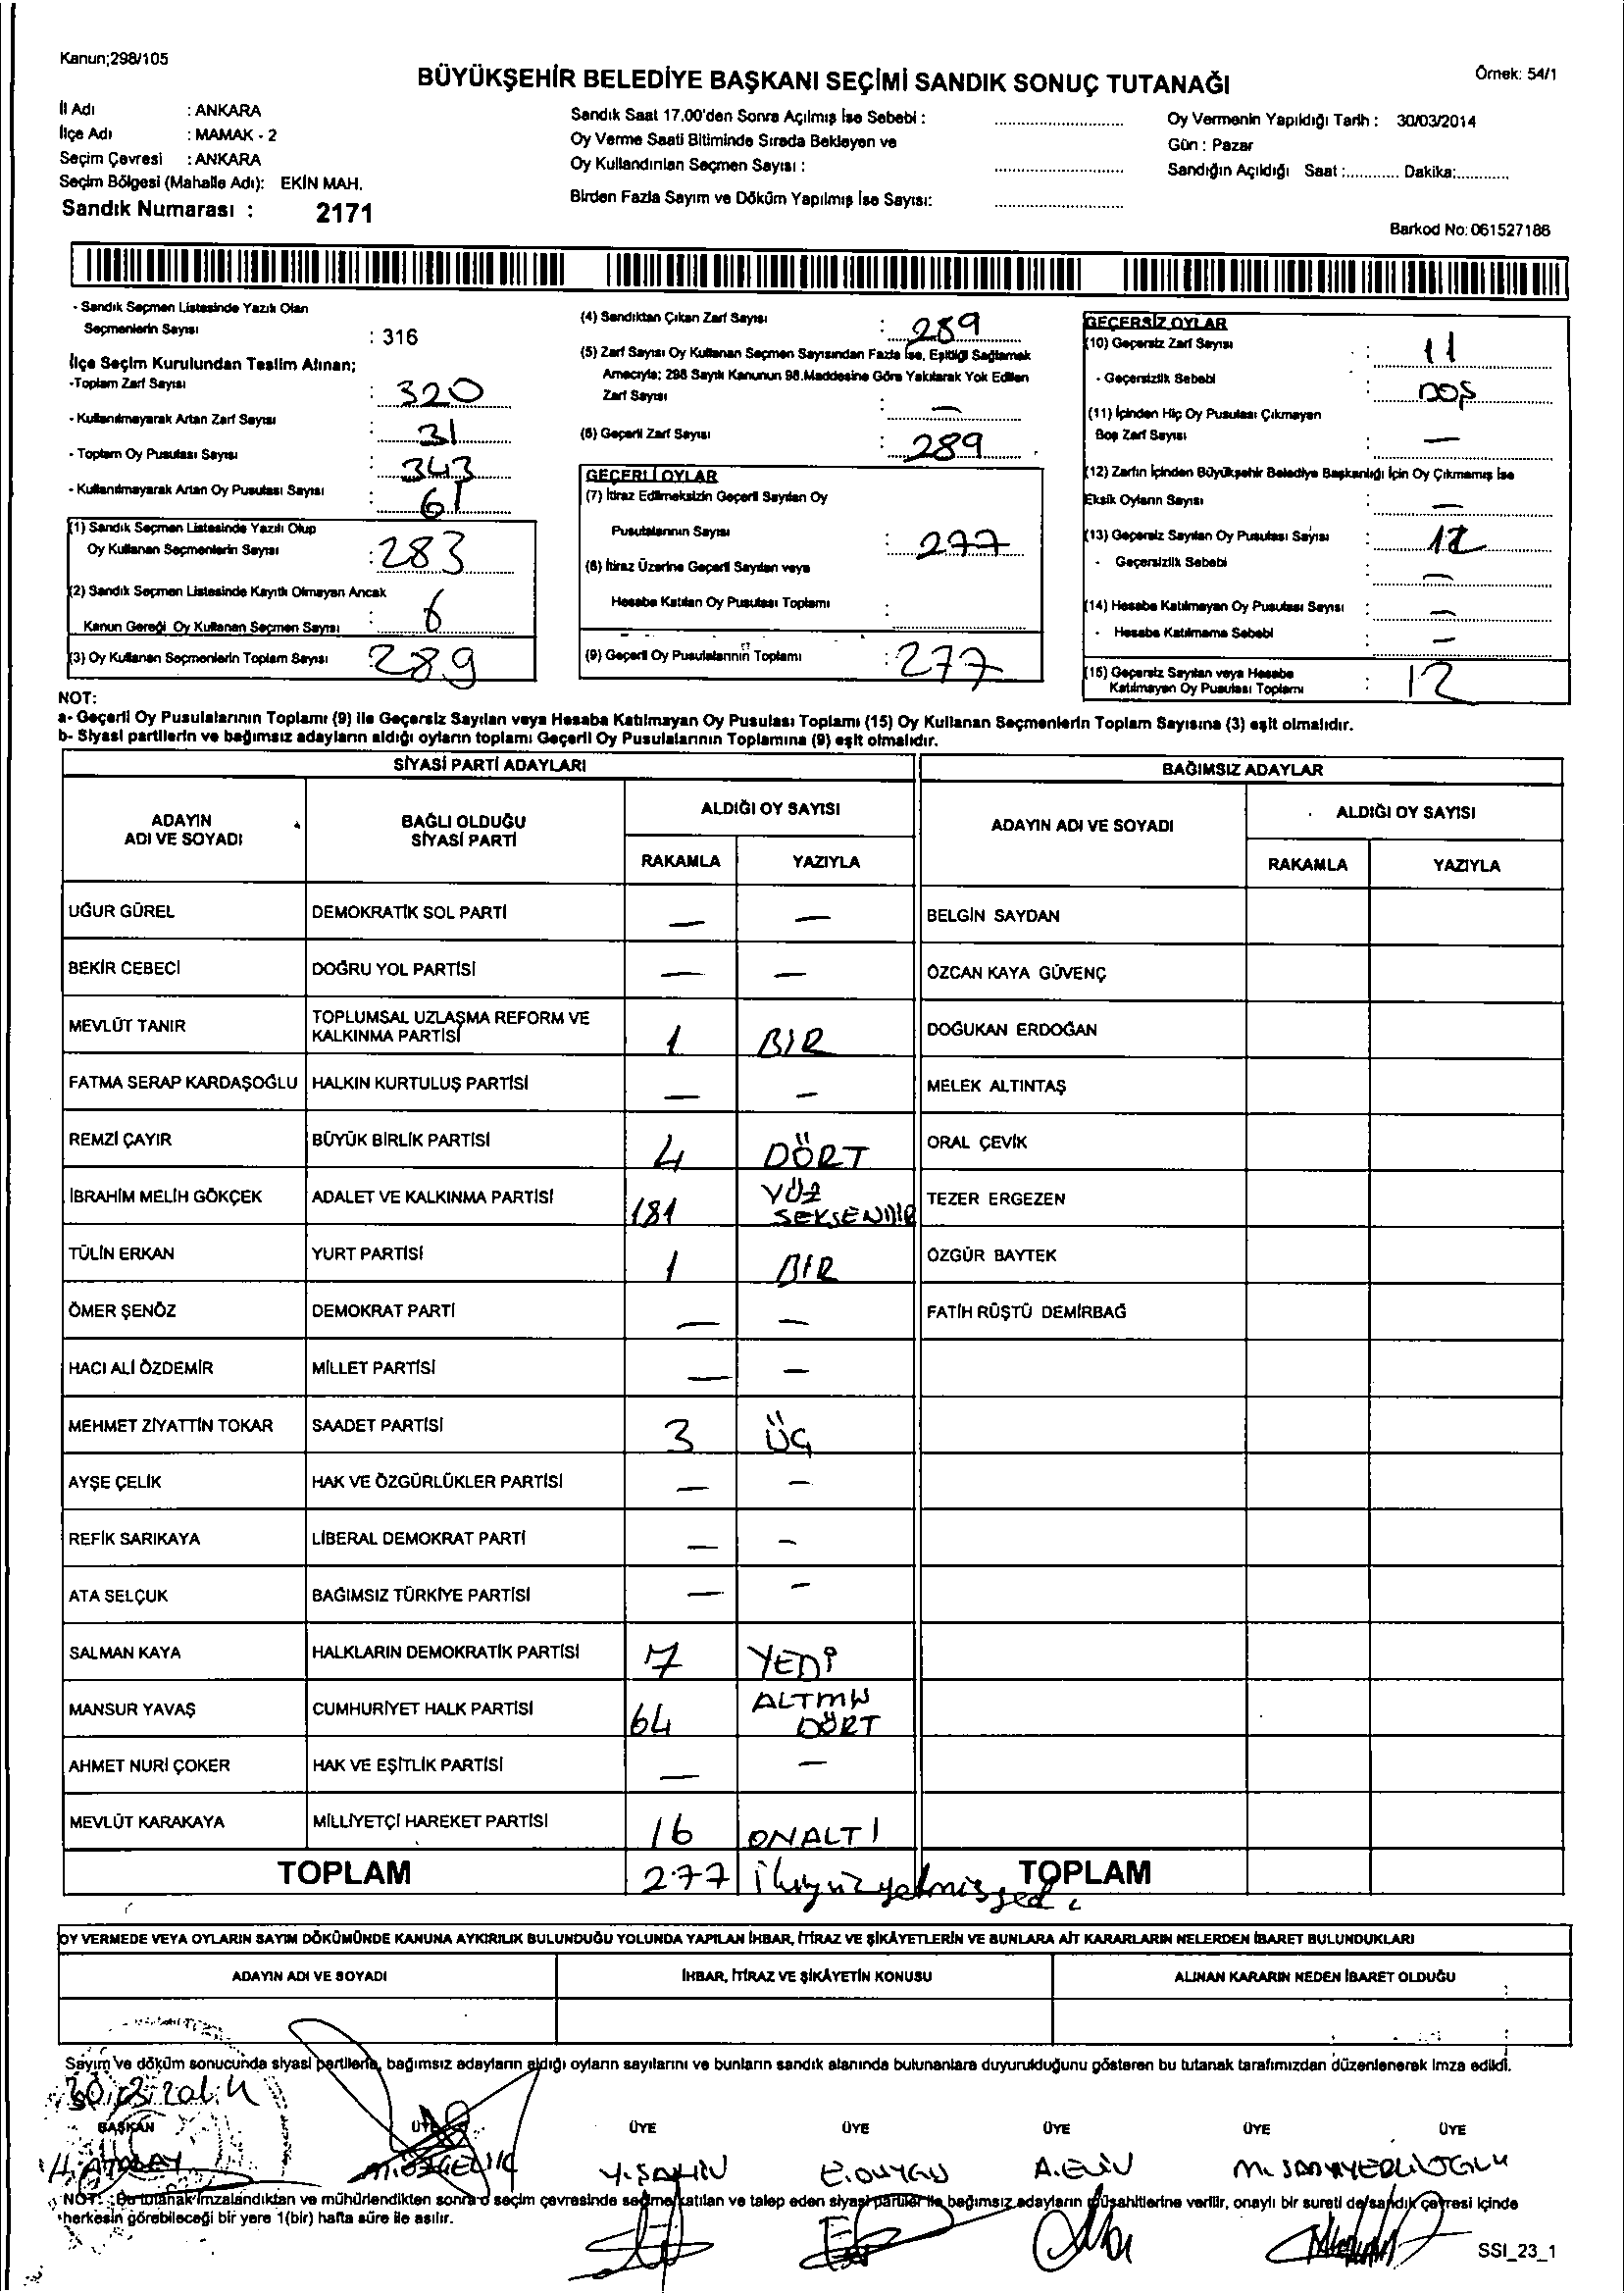 Kanun;298/105
BÜYÜKŞEHİR BELEDİYE BAŞKANI SEÇİMİ SANDIK SONUÇ TUTANAĞI
Örnek: 54/1
İl Adı : ANKARA
İlçe Adı : MAMAK - 2
Seçim Çevresi : ANKARA
Seçim Bölgesi (Mahalle Adı): EKİN MAH.
Sandık Numarası : 2171
Sandık Saat 17.00'den Sonra Açılmış İse Sebebi :
Oy Verme Saati Bitiminde Sırada Bekleyen ve
Oy Kullandırılan Seçmen Sayısı :
Birden Fazla Sayım ve Döküm Yapılmış İse Sayısı:
Oy Vermenin Yapıldığı Tarih : 30/03/2014
Gün : Pazar
Sandığın Açıldığı Saat :............ Dakika:............
Barkod No: 061527186
- Sandık Seçmen Listesinde Yazılı Olan
Seçmenlerin Sayısı : 316
İlçe Seçim Kurulundan Teslim Alınan;
-Toplam Zarf Sayısı : 320
- Kullanılmayarak Artan Zarf Sayısı : 31
- Toplam Oy Pusulası Sayısı : 343
- Kullanılmayarak Artan Oy Pusulası Sayısı : 61
(1) Sandık Seçmen Listesinde Yazılı Olup
Oy Kullanan Seçmenlerin Sayısı : 283
(2) Sandık Seçmen Listesinde Kayıtlı Olmayan Ancak
Kanun Gereği Oy Kullanan Seçmen Sayısı : 6
(3) Oy Kullanan Seçmenlerin Toplam Sayısı : 289
(4) Sandıktan Çıkan Zarf Sayısı : 289
(5) Zarf Sayısı Oy Kullanan Seçmen Sayısından Fazla İse, Eşitliği Sağlamak
Amacıyla; 298 Sayılı Kanunun 98.Maddesine Göre Yakılarak Yok Edilen
Zarf Sayısı : —
(6) Geçerli Zarf Sayısı : 289
GEÇERLİ OYLAR
(7) İtiraz Edilmeksizin Geçerli Sayılan Oy
Pusulalarının Sayısı : 277
(8) İtiraz Üzerine Geçerli Sayılan veya
Hesaba Katılan Oy Pusulası Toplamı :
(9) Geçerli Oy Pusulalarının Toplamı : 277
GEÇERSİZ OYLAR
(10) Geçersiz Zarf Sayısı : 11
- Geçersizlik Sebebi : BOŞ
(11) İçinden Hiç Oy Pusulası Çıkmayan
Boş Zarf Sayısı : —
(12) Zarfın İçinden Büyükşehir Belediye Başkanlığı İçin Oy Çıkmamış İse
Eksik Oyların Sayısı : —
(13) Geçersiz Sayılan Oy Pusulası Sayısı : 12
- Geçersizlik Sebebi : —
(14) Hesaba Katılmayan Oy Pusulası Sayısı : —
- Hesaba Katılmama Sebebi : —
(15) Geçersiz Sayılan veya Hesaba
Katılmayan Oy Pusulası Toplamı : 12
NOT:
a- Geçerli Oy Pusulalarının Toplamı (9) ile Geçersiz Sayılan veya Hesaba Katılmayan Oy Pusulası Toplamı (15) Oy Kullanan Seçmenlerin Toplam Sayısına (3) eşit olmalıdır.
b- Siyasi partilerin ve bağımsız adayların aldığı oyların toplamı Geçerli Oy Pusulalarının Toplamına (9) eşit olmalıdır.
SİYASİ PARTİ ADAYLARI
BAĞIMSIZ ADAYLAR
ADAYIN ADI VE SOYADI
BAĞLI OLDUĞU SİYASİ PARTİ
ALDIĞI OY SAYISI
RAKAMLA YAZIYLA
ADAYIN ADI VE SOYADI
ALDIĞI OY SAYISI
RAKAMLA YAZIYLA
UĞUR GÜREL DEMOKRATİK SOL PARTİ — — BELGİN SAYDAN
BEKİR CEBECİ DOĞRU YOL PARTİSİ — — ÖZCAN KAYA GÜVENÇ
MEVLÜT TANIR TOPLUMSAL UZLAŞMA REFORM VE KALKINMA PARTİSİ 1 BİR DOĞUKAN ERDOĞAN
FATMA SERAP KARDAŞOĞLU HALKIN KURTULUŞ PARTİSİ — — MELEK ALTINTAŞ
REMZİ ÇAYIR BÜYÜK BİRLİK PARTİSİ 4 DÖRT ORAL ÇEVİK
İBRAHİM MELİH GÖKÇEK ADALET VE KALKINMA PARTİSİ 181 YÜZ SEKSENBİR TEZER ERGEZEN
TÜLİN ERKAN YURT PARTİSİ 1 BİR ÖZGÜR BAYTEK
ÖMER ŞENÖZ DEMOKRAT PARTİ — — FATİH RÜŞTÜ DEMİRBAĞ
HACI ALİ ÖZDEMİR MİLLET PARTİSİ — —
MEHMET ZİYATTİN TOKAR SAADET PARTİSİ 3 ÜÇ
AYŞE ÇELİK HAK VE ÖZGÜRLÜKLER PARTİSİ — —
REFİK SARIKAYA LİBERAL DEMOKRAT PARTİ — —
ATA SELÇUK BAĞIMSIZ TÜRKİYE PARTİSİ — —
SALMAN KAYA HALKLARIN DEMOKRATİK PARTİSİ 7 YEDİ
MANSUR YAVAŞ CUMHURİYET HALK PARTİSİ 64 ALTMIŞ DÖRT
AHMET NURİ ÇOKER HAK VE EŞİTLİK PARTİSİ — —
MEVLÜT KARAKAYA MİLLİYETÇİ HAREKET PARTİSİ 16 ONALTI
TOPLAM 277 ikiyüzyetmişyedi TOPLAM
OY VERMEDE VEYA OYLARIN SAYIM DÖKÜMÜNDE KANUNA AYKIRILIK BULUNDUĞU YOLUNDA YAPILAN İHBAR, İTİRAZ VE ŞİKÂYETLERİN VE BUNLARA AİT KARARLARIN NELERDEN İBARET BULUNDUKLARI
ADAYIN ADI VE SOYADI İHBAR, İTİRAZ VE ŞİKÂYETİN KONUSU ALINAN KARARIN NEDEN İBARET OLDUĞU
Sayım ve döküm sonucunda siyasi partilerin, bağımsız adayların aldığı oyların sayılarını ve bunların sandık alanında bulunanlara duyurulduğunu gösteren bu tutanak tarafımızdan düzenlenerek imza edildi.
30.03.2014
BAŞKAN ÜYE ÜYE ÜYE ÜYE ÜYE ÜYE
Y.ŞAHİN E.DUYGU A.ELİV
NOT: Bu tutanak imzalandıktan ve mühürlendikten sonra o seçim çevresinde seçime katılan ve talep eden siyasi partiler ile bağımsız adayların müşahitlerine verilir, onaylı bir sureti de sandık çevresi içinde
herkesin görebileceği bir yere 1(bir) hafta süre ile asılır.
SSI_23_1